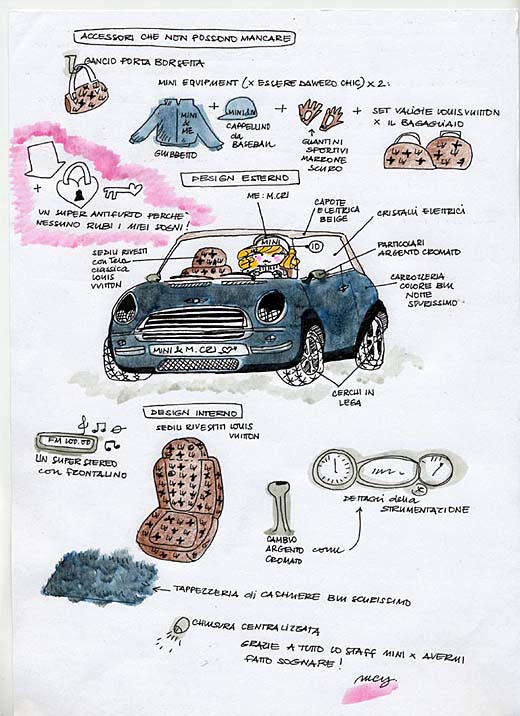 ACCESSORI CHE NON POSSONO MANCARE
GANCIO PORTA BORSETTA
MINI EQUIPMENT (X ESSERE DAVVERO CHIC) X 2:
MINI & ME
GIUBBETTO
+
MINI &
CAPPELLINO
da
BASEBALL
+
GUANTINI
SPORTIVI
MARRONE
SCURO
+
SET VALIGIE LOUIS VUITTON
X IL BAGAGLIAIO
+
UN SUPER ANTIFURTO PERCHÉ
NESSUNO RUBI I MIEI SOGNI!
DESIGN ESTERNO
ME: M.CRI
CAPOTE
ELETTRICA
BEIGE
CRISTALLI ELETTRICI
PARTICOLARI
ARGENTO CROMATO
CARROZZERIA
COLORE BLU
NOTTE
SCURISSIMO
SEDILI RIVESTITI
con Tela
classica
LOUIS
VUITTON
MINI
MINI & M.CRI
CERCHI IN
LEGA
DESIGN INTERNO
SEDILI RIVESTITI LOUIS
VUITTON
FM 100.00
UN SUPER STEREO
con FRONTALINO
DETTAGLI della
STRUMENTAZIONE
CAMBIO
ARGENTO come
CROMATO
TAPPEZZERIA di CASHMERE BLU SCURISSIMO
CHIUSURA CENTRALIZZATA
GRAZIE A TUTTO LO STAFF MINI X AVERMI
FATTO SOGNARE!